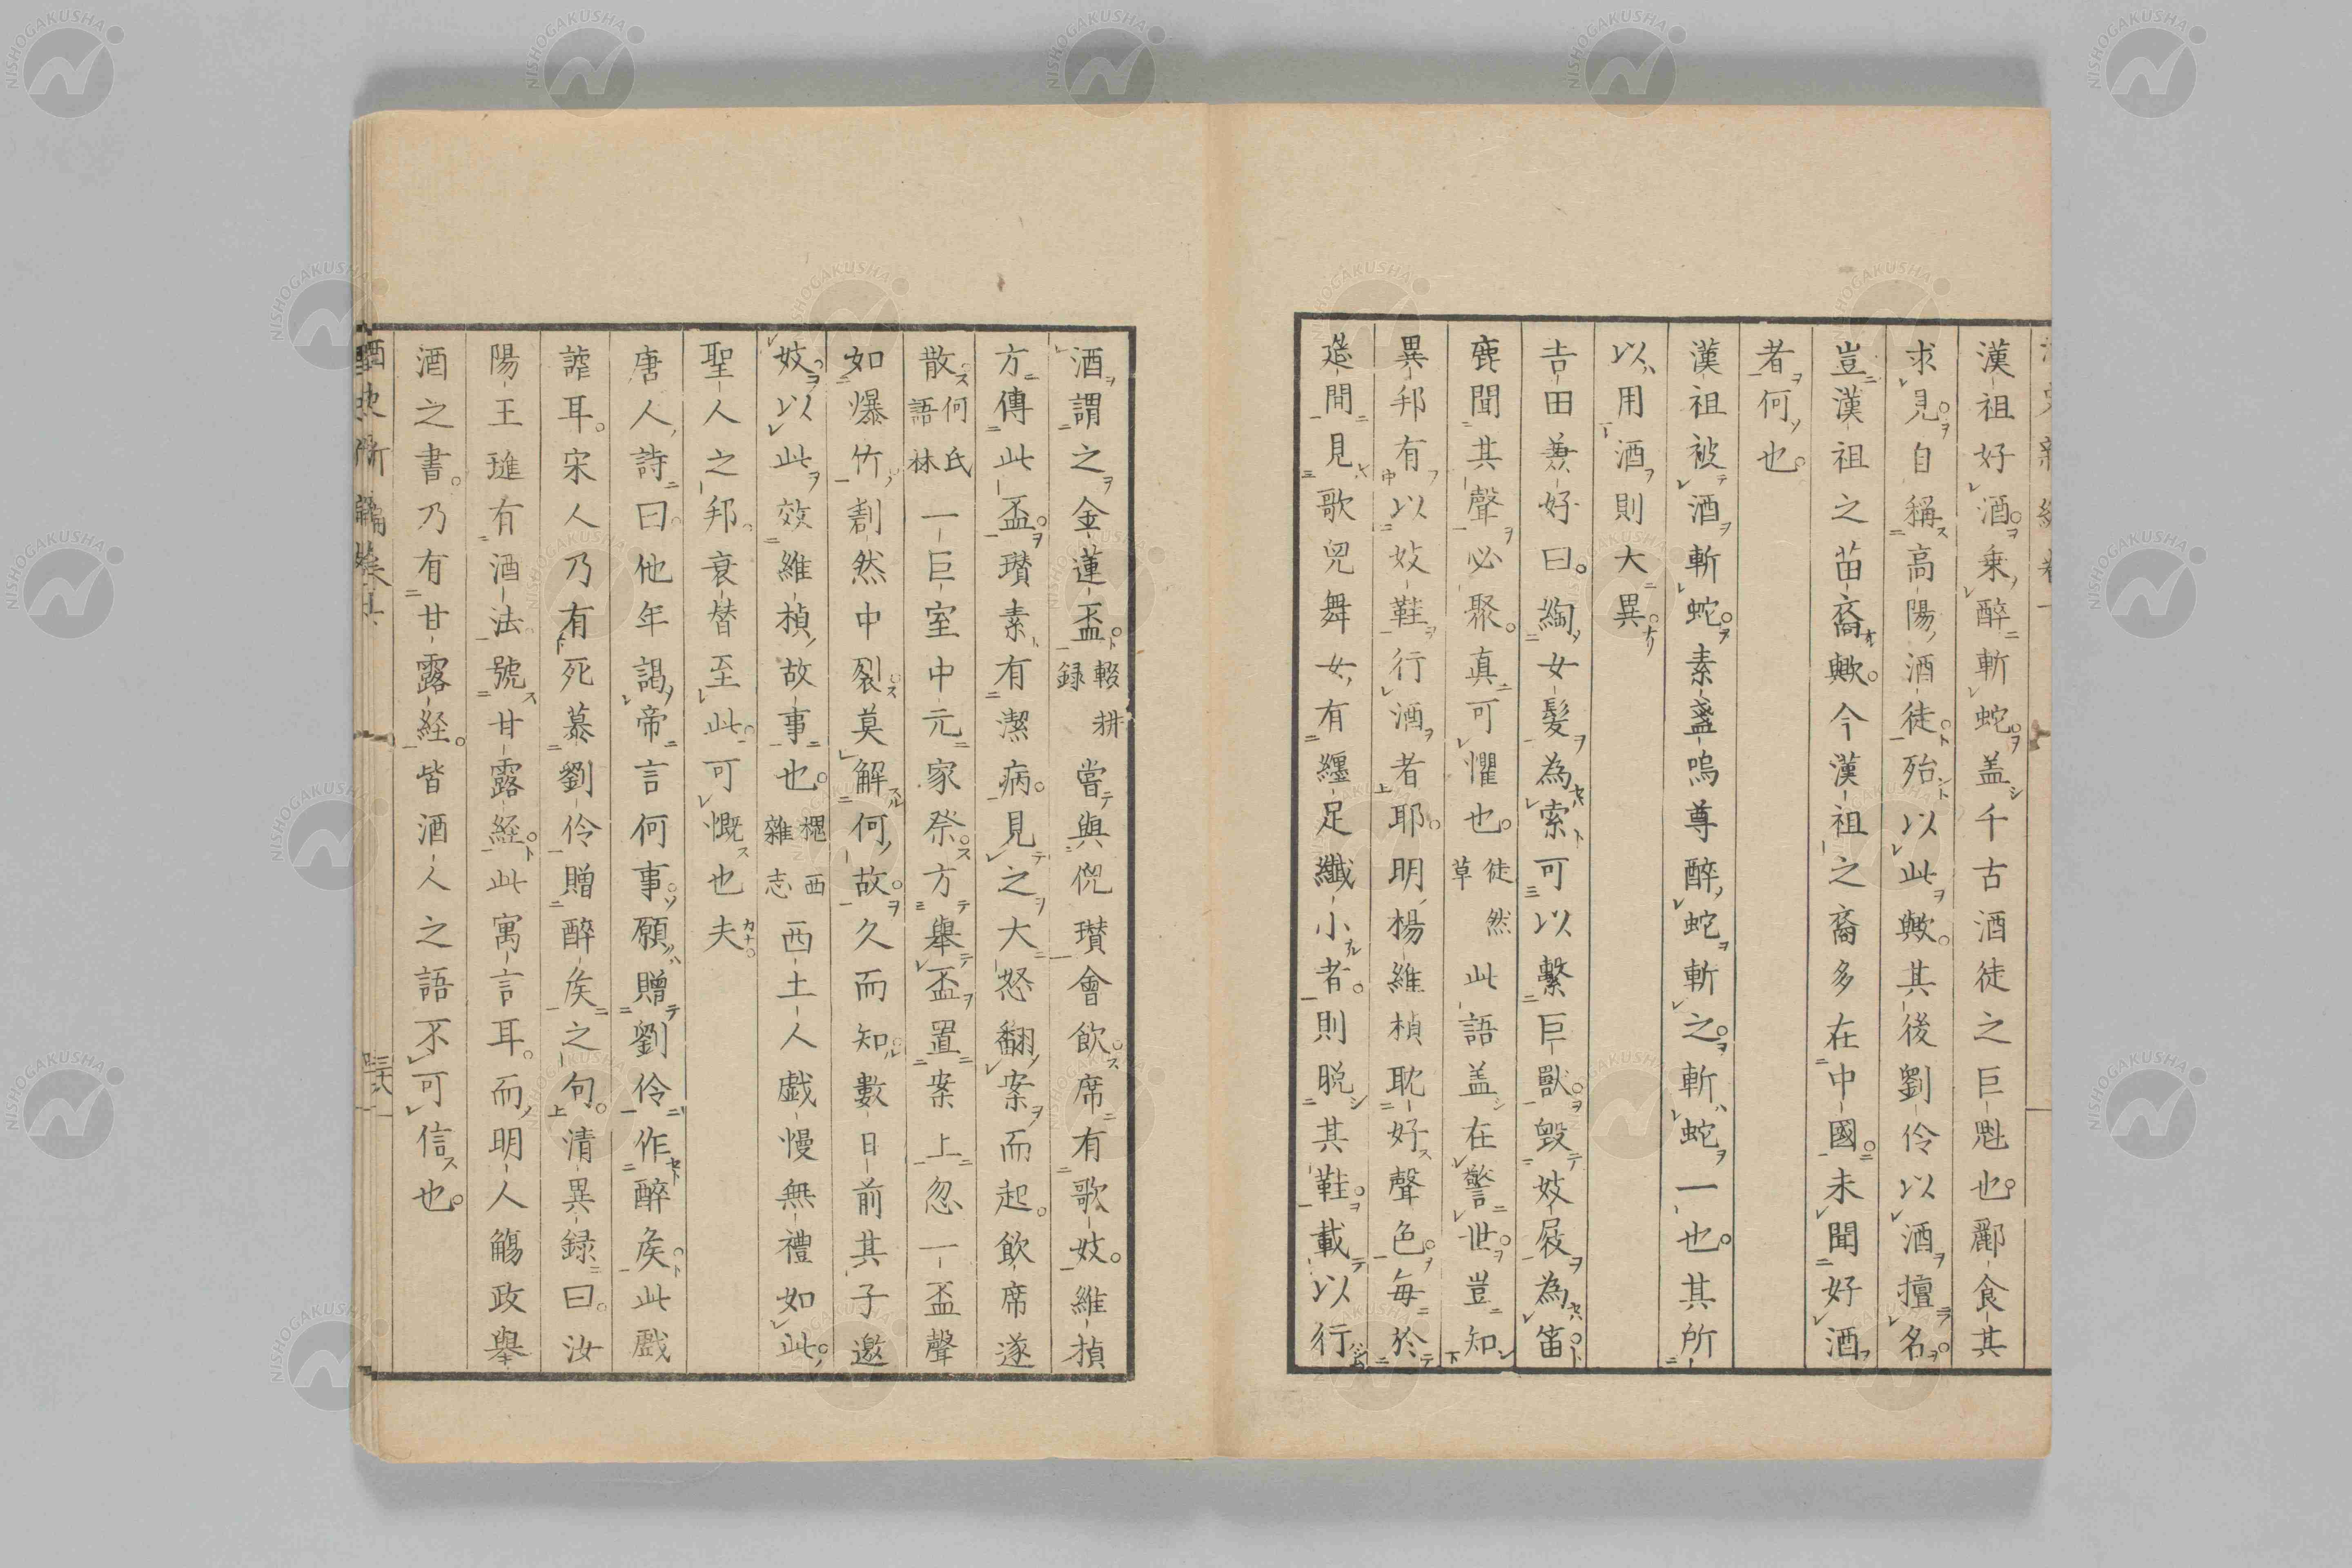 漢祖好酒乗醉斬蛇盖千古酒徒之巨魁也酈食其
求見自稱高陽酒徒殆以此歟其後劉伶以酒擅名
豈漢祖之苗裔歟今漢祖之裔多在中國未聞好酒
者何也
漢祖被酒斬蛇素盞嗚尊醉蛇斬之斬蛇一也其所
以用酒則大異
吉田兼好曰綯女髮為索可以繫巨獸毀妓屐為笛
鹿聞其聲必聚真可懼也徒然草此語盖在警世豈知
異邦有以妓鞋行酒者耶明楊維楨耽好聲色每於
筵間見歌兒舞女有纏足纖小者則脱其鞋載以行
酒謂之金蓮盃輟耕録嘗與倪瓚會飲席有歌妓維楨
方傳此盃瓚素有潔病見之大怒翻案而起飲席遂
散何氏語林一巨室中元家祭方舉盃置案上忽一盃聲
如爆竹劃然中裂莫解何故久而知數日前其子邀
妓以此效維楨故事也穲西雜志西土人戯慢無禮如此
聖人之邦衰替至此可慨也夫
唐人詩曰他年謁帝言何事願贈劉伶作醉矦此戯
謔耳宋人乃有死慕劉伶贈醉矦之句清異録曰汝
陽王璡有酒法號甘露経此寓言耳而明人觴政舉
酒之書乃有甘露経皆酒人之語不可信也